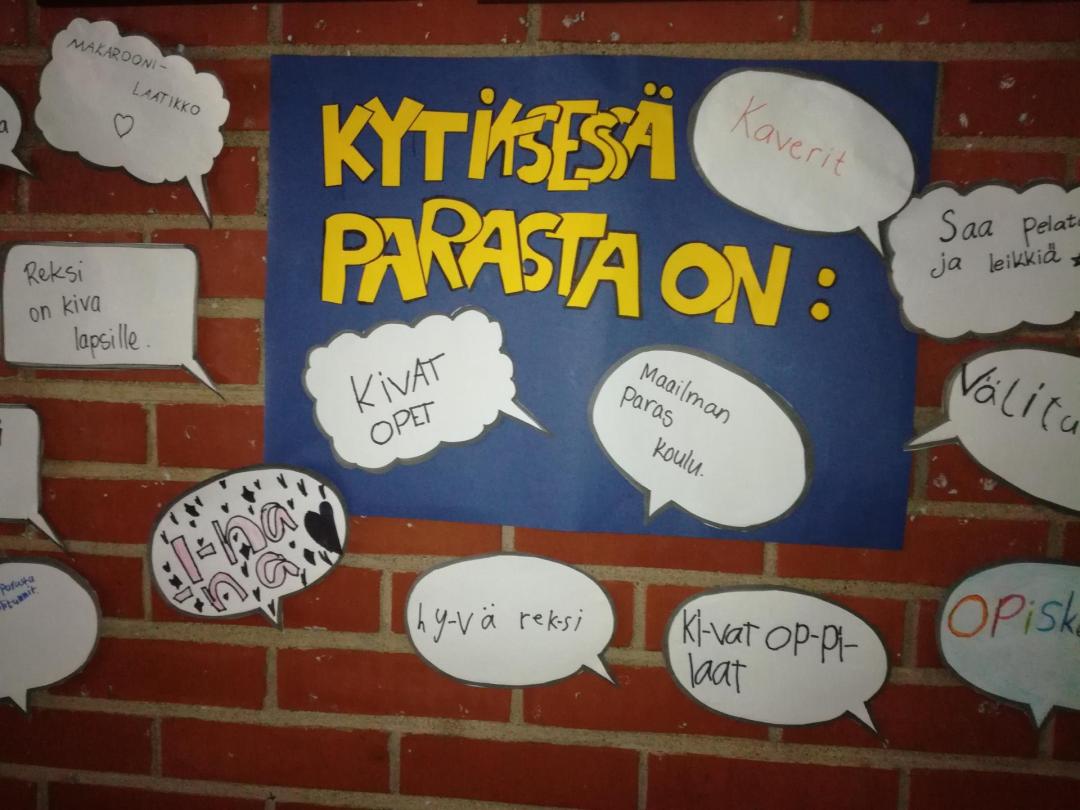 KYTIKSESSÄ
PARASTA ON :
MAKAROONI-
LAATIKKO
Kaverit
Saa pelata
ja leikkiä
Reksi
on kiva
lapsille.
KIVAT
OPET
Maailman
paras
koulu.
I-na
na
hy-vä rek-si
KI-vat op-pi-
laat
parasta